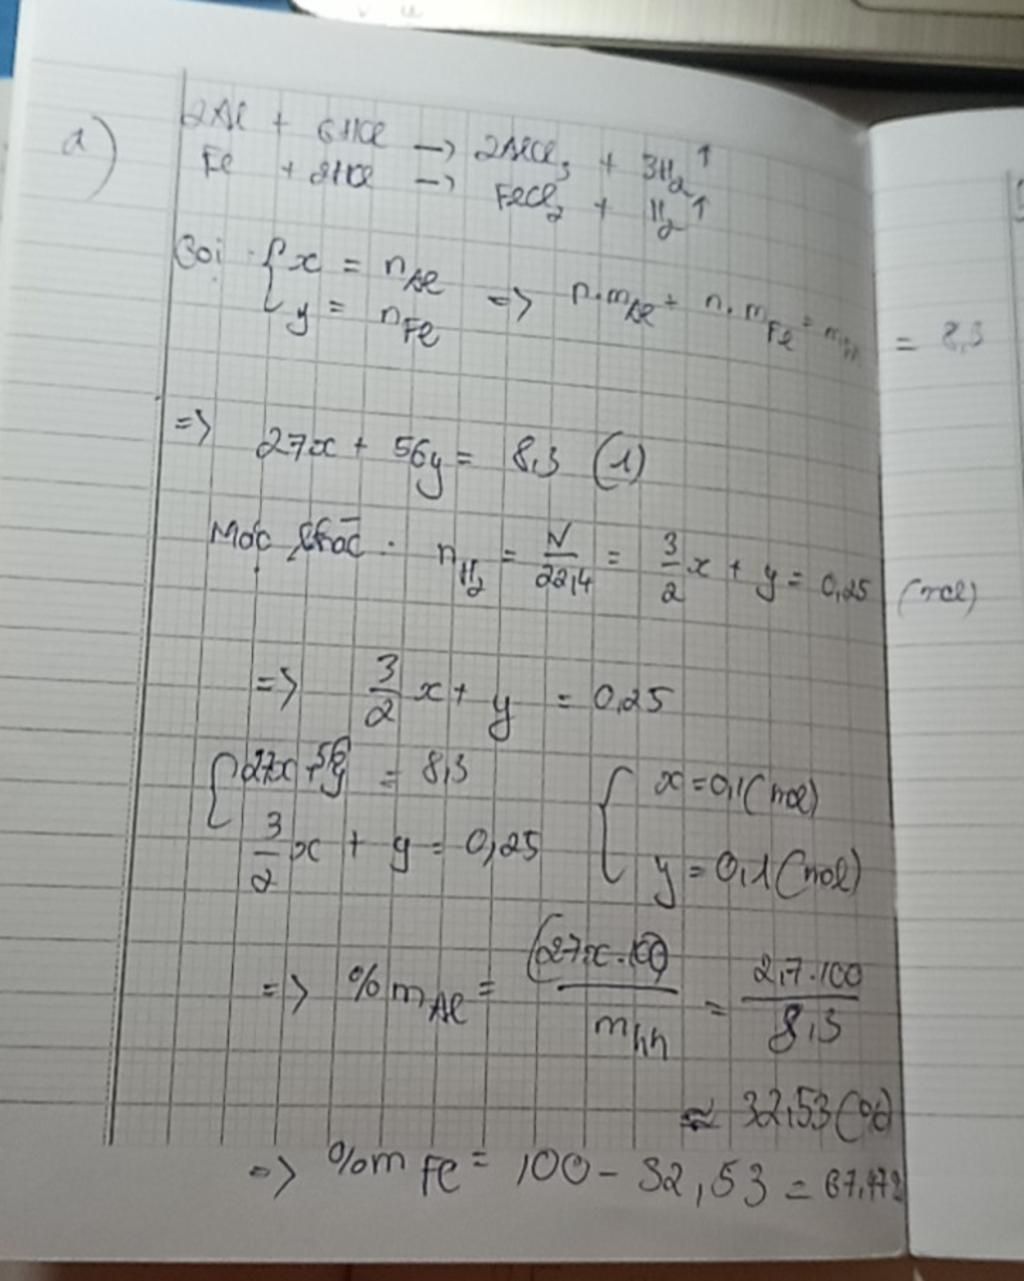 a)
2Al + 6HCl -> 2AlCl3 + 3H2↑
Fe + 2HCl -> FeCl2 + H2↑
Gọi { x = nAl
y = nFe => n.mAl + n.mFe = mhh = 8,3
=> 27x + 56y = 8,3 (1)
Mặc khác: nH2 = V/22,4 = 3/2 x + y = 0,25 (mol)
=> 3/2 x + y = 0,25
{ 27x + 56y = 8,3 { x = 0,1 (mol)
3/2 x + y = 0,25 y = 0,1 (mol)
=> %mAl = (27x.100)/mhh = 2,7.100/8,3
≈ 32,53 (%)
=> %mFe = 100 - 32,53 = 67,47%